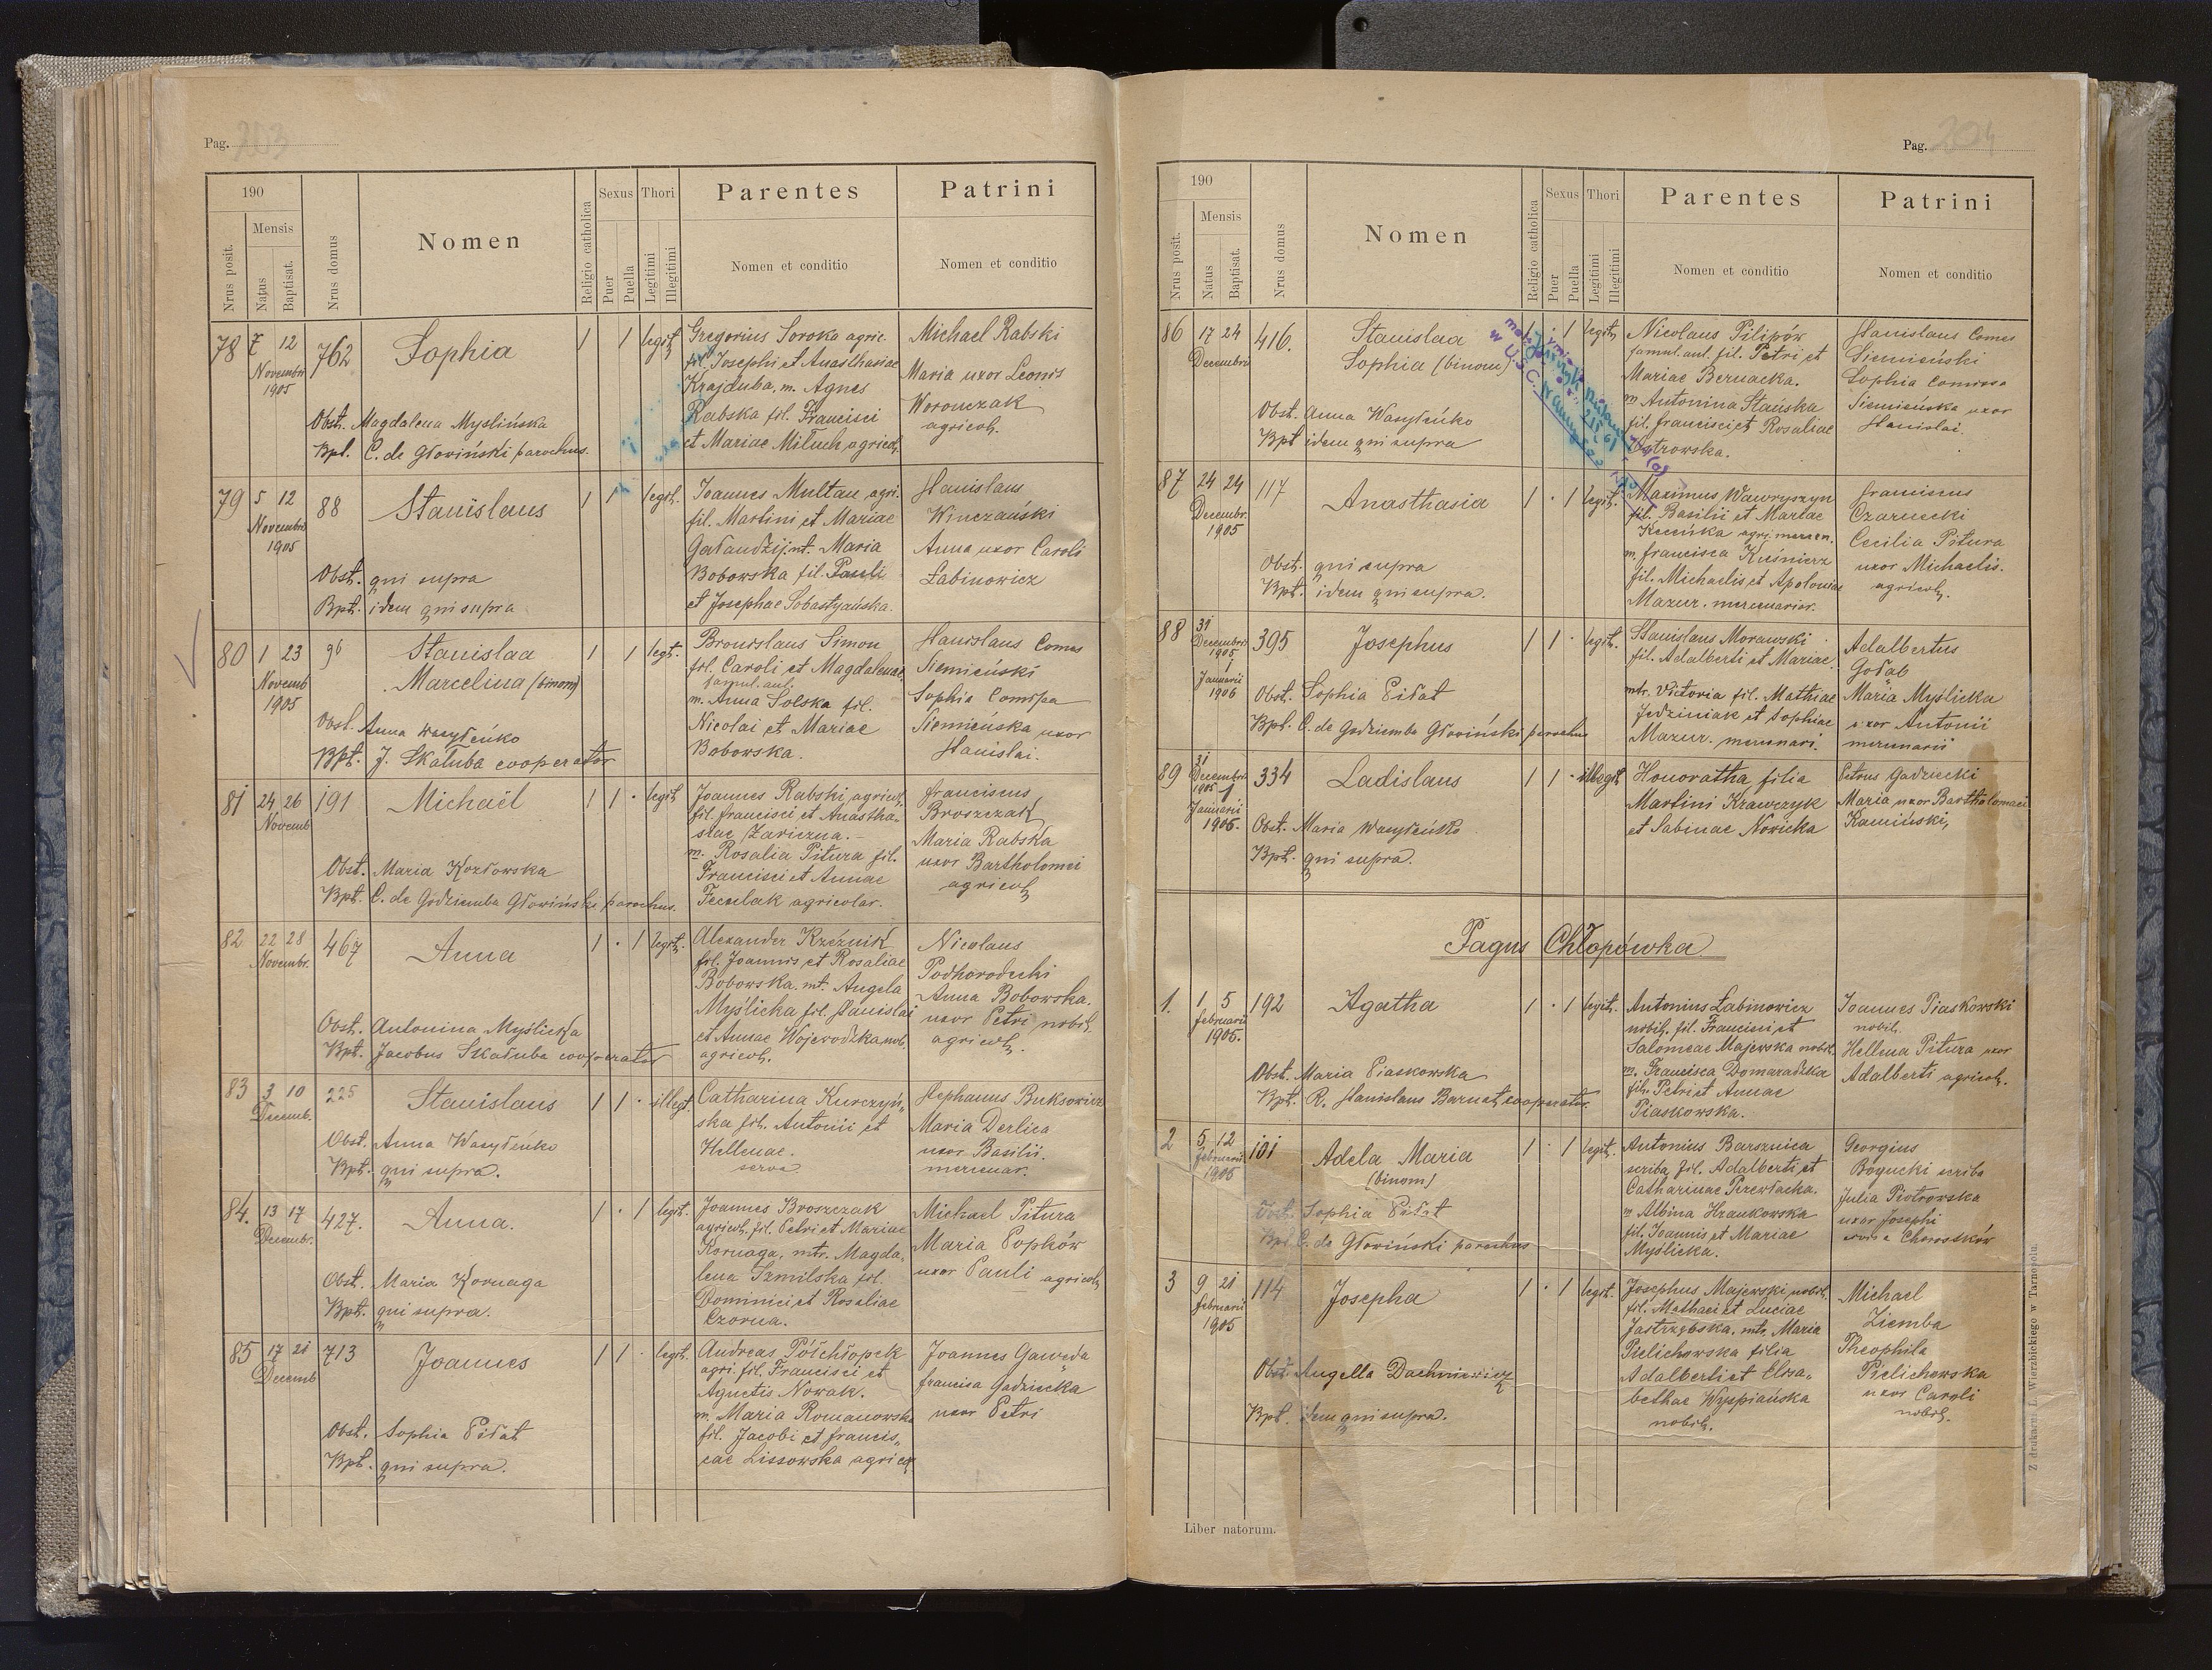 Pag. 203
190
Nrus posit.
Mensis
Natus
Baptisat.
Nrus domus
Nomen
Religio catholica
Sexus
Puer
Puella
Thori
Legitimi
Illegitimi
Parentes
Nomen et conditio
Patrini
Nomen et conditio
78 7 12 Novembri 1905 762 Sophia 1 1 legit.
Gregorius Soroka agric.
fil. Josephi et Anasthasiae
Krajduba, m. Agnes
Rabska fil. Francisci
et Mariae Miluch agricol.
Michael Rabski
Maria uxor Leonis
Woronczak
agricol.
Obst. Magdalena Myslińska
Bpt. C. de Głowiński parochus.
79 5 12 Novembris 1905 88 Stanislaus 1 1 legit.
Joannes Multan agri.
fil. Martini et Mariae
Gaładzij, mt. Maria
Bobowska fil. Pauli
et Josephae Sobastyańska.
Stanislaus
Winczański
Anna uxor Caroli
Łabinowicz
Obst. qui supra
Bpt. idem qui supra
80 1 23 Novemb 1905 96 Stanislaa
Marcelina (binom) 1 1 legt.
Bronislaus Simon
fil. Caroli et Magdalenae
famul. aul.
m. Anna Solska fil.
Nicolai et Mariae
Bobowska.
Stanislaus Comes
Siemieński
Sophia Comissa
Siemieńska uxor
Stanislai.
Obst. Anna Wasyleńko
Bpt. J. Skałuba cooperator
81 24 26 Novemb 191 Michaël 1 1 legit
Joannes Rabski, agricol.
fil. Francisci et Anastha-
siae Zariczna.
m. Rosalia Pitura fil.
Francisci et Annae
Feculak agricolar.
Franciscus
Broszczak
Maria Rabska
uxor Bartholomei
agricol.
Obst. Maria Kozłowska
Bpt. C. de Godziemba Głowiński parochus.
82 22 28 Novembr. 467 Anna 1 1 legit.
Alexander Krzeznik
fil. Joannis et Rosaliae
Bobowska. mt. Angela
Myślicka fil. Stanislai
et Annae Wojewodzka nob.
agricol.
Nicolaus
Podhorodecki
Anna Bobowska.
uxor Petri nobil.
agricol.
Obst. Antonina Myślicka
Bpt. Jacobus Skałuba cooperator
83 3 10 Decemb. 225 Stanislaus 1 1 illegt.
Catharina Kurczyń-
ska fil. Antonii et
Hellenae.
serva
Stephanus Buksowicz
Maria Derlica
uxor Basilii.
mercenar.
Obst. Anna Wasyleńko
Bpt. qui supra.
84. 13 17 Decembr. 427. Anna. 1 1 legit.
Joannes Broszczak
agricol. fil. Petri et Mariae
Kornaga, mtr. Magda-
lena Szmilska fil.
Dominici et Rosaliae
Czorna.
Michael Pitura
Maria Popków
uxor Pauli agricol.
Obst. Maria Kornaga
Bpt. qui supra.
85 17 21 Decemb 713 Joannes 1 1 legit.
Andreas Półchłopek
agri. fil. Francisci et
Agnetis Nowak.
m. Maria Romanowska
fil. Jacobi et Francis-
cae Lissowska agricol
Joannes Gawęda
Francisca Gadziecka
uxor Petri
Obst. Sophia Piłat
Bpt. qui supra.
Pag. 204
190
Nrus posit.
Mensis
Natus
Baptisat.
Nrus domus
Nomen
Religio catholica
Sexus
Puer
Puella
Thori
Legitimi
Illegitimi
Parentes
Nomen et conditio
Patrini
Nomen et conditio
86 17 24 Decembris 416. Stanislaa
Sophia (binom) 1 1 legit.
Nicolaus Pilipów
famul. aul. fil. Petri et
Mariae Bernacka.
m Antonina Stańska
fil. Francisci et Rosaliae
Ostrowska.
Stanislaus Comes
Siemieński
Sophia Comissa
Siemieńska uxor
Stanislai.
Obst. Anna Wasyleńko
Bpt idem qui supra
87 24 24 Decembr. 1905 117 Anasthasia 1 1 legit.
Maximus Wawryszyn
fil. Basilii et Mariae
m. Francisca Kuśnierz
fil. Michaelis et Apoloniae
Mazur. mercenarior.
Franciscus
Czarnecki
Cecilia Pitura
uxor Michaelis.
agricol.
Obst. qui supra
Bpt. idem qui supra.
88 31 Decembris 1905 1 Januarii 1906 395 Josephus 1 1 legit.
Stanislaus Morawski
fil. Adalberti et Mariae
mtr. Victoria fil. Mathiae
Jedziniak et Sophiae
Mazur. mercenari.
Adalbertus
Gołąb
Maria Myślicka
uxor Antonii
mercenarii
Obst. Sophia Piłat
Bpt. C. de Godziemba Głowiński parochus
89 31 Decembris 1905 1 Januarii 1906. 334 Ladislaus 1 1 illegit
Honoratha filia
Martini Krawczyk
et Sabinae Nowicka
Petrus Gadziecki
Maria uxor Bartholomaei
Kamiński,
Obst. Maria Wasyleńko
Bpt. qui supra.
Pagus Chłopówka
1. 1 5 Februarii 1905. 192 Agatha 1 1 legit.
Antonius Łabinowicz
nobil. fil. Francisci et
Salomeae Majewska nobil.
m. Francisca Domaradzka
fil. Petri et Annae
Piaskowska.
Joannes Piaskowski
nobil.
Hellena Pitura uxor
Adalberti agricol.
Obst. Maria Piaskowska
Bpt. R. Stanislaus Barnat, cooperator.
2 5 12 Februarii 1905 101 Adela Maria
(binom) 1 1 legit.
Antonius Barsznica
scriba, fil. Adalberti et
Catharinae Przewłacka.
m Albina Hrankowska
fil. Joannis et Mariae
Myślicka.
Georgius
Bogucki scriba
Julia Piotrowska
uxor Josephi
Chorostków
Obst. Sophia Piłat
Bpt. C. de Głowiński parochus
3 9 21 Februarii 1905 114 Josepha 1 1 legit.
Josephus Majewski, nobil.
fil. Mathaei et Luciae
Jastrzębska, mtr. Maria
Pielichowska filia
Adalberti et Elisa-
bethae Wyspiańska
nobil.
Michael
Ziemba
Theophila
Pielichowska
uxor Caroli
nobil.
Obst. Angella Dachniewicz
Bpt. idem qui supra.
Liber natorum.
Z drukarni L. Wierzbickiego w Tarnopolu.